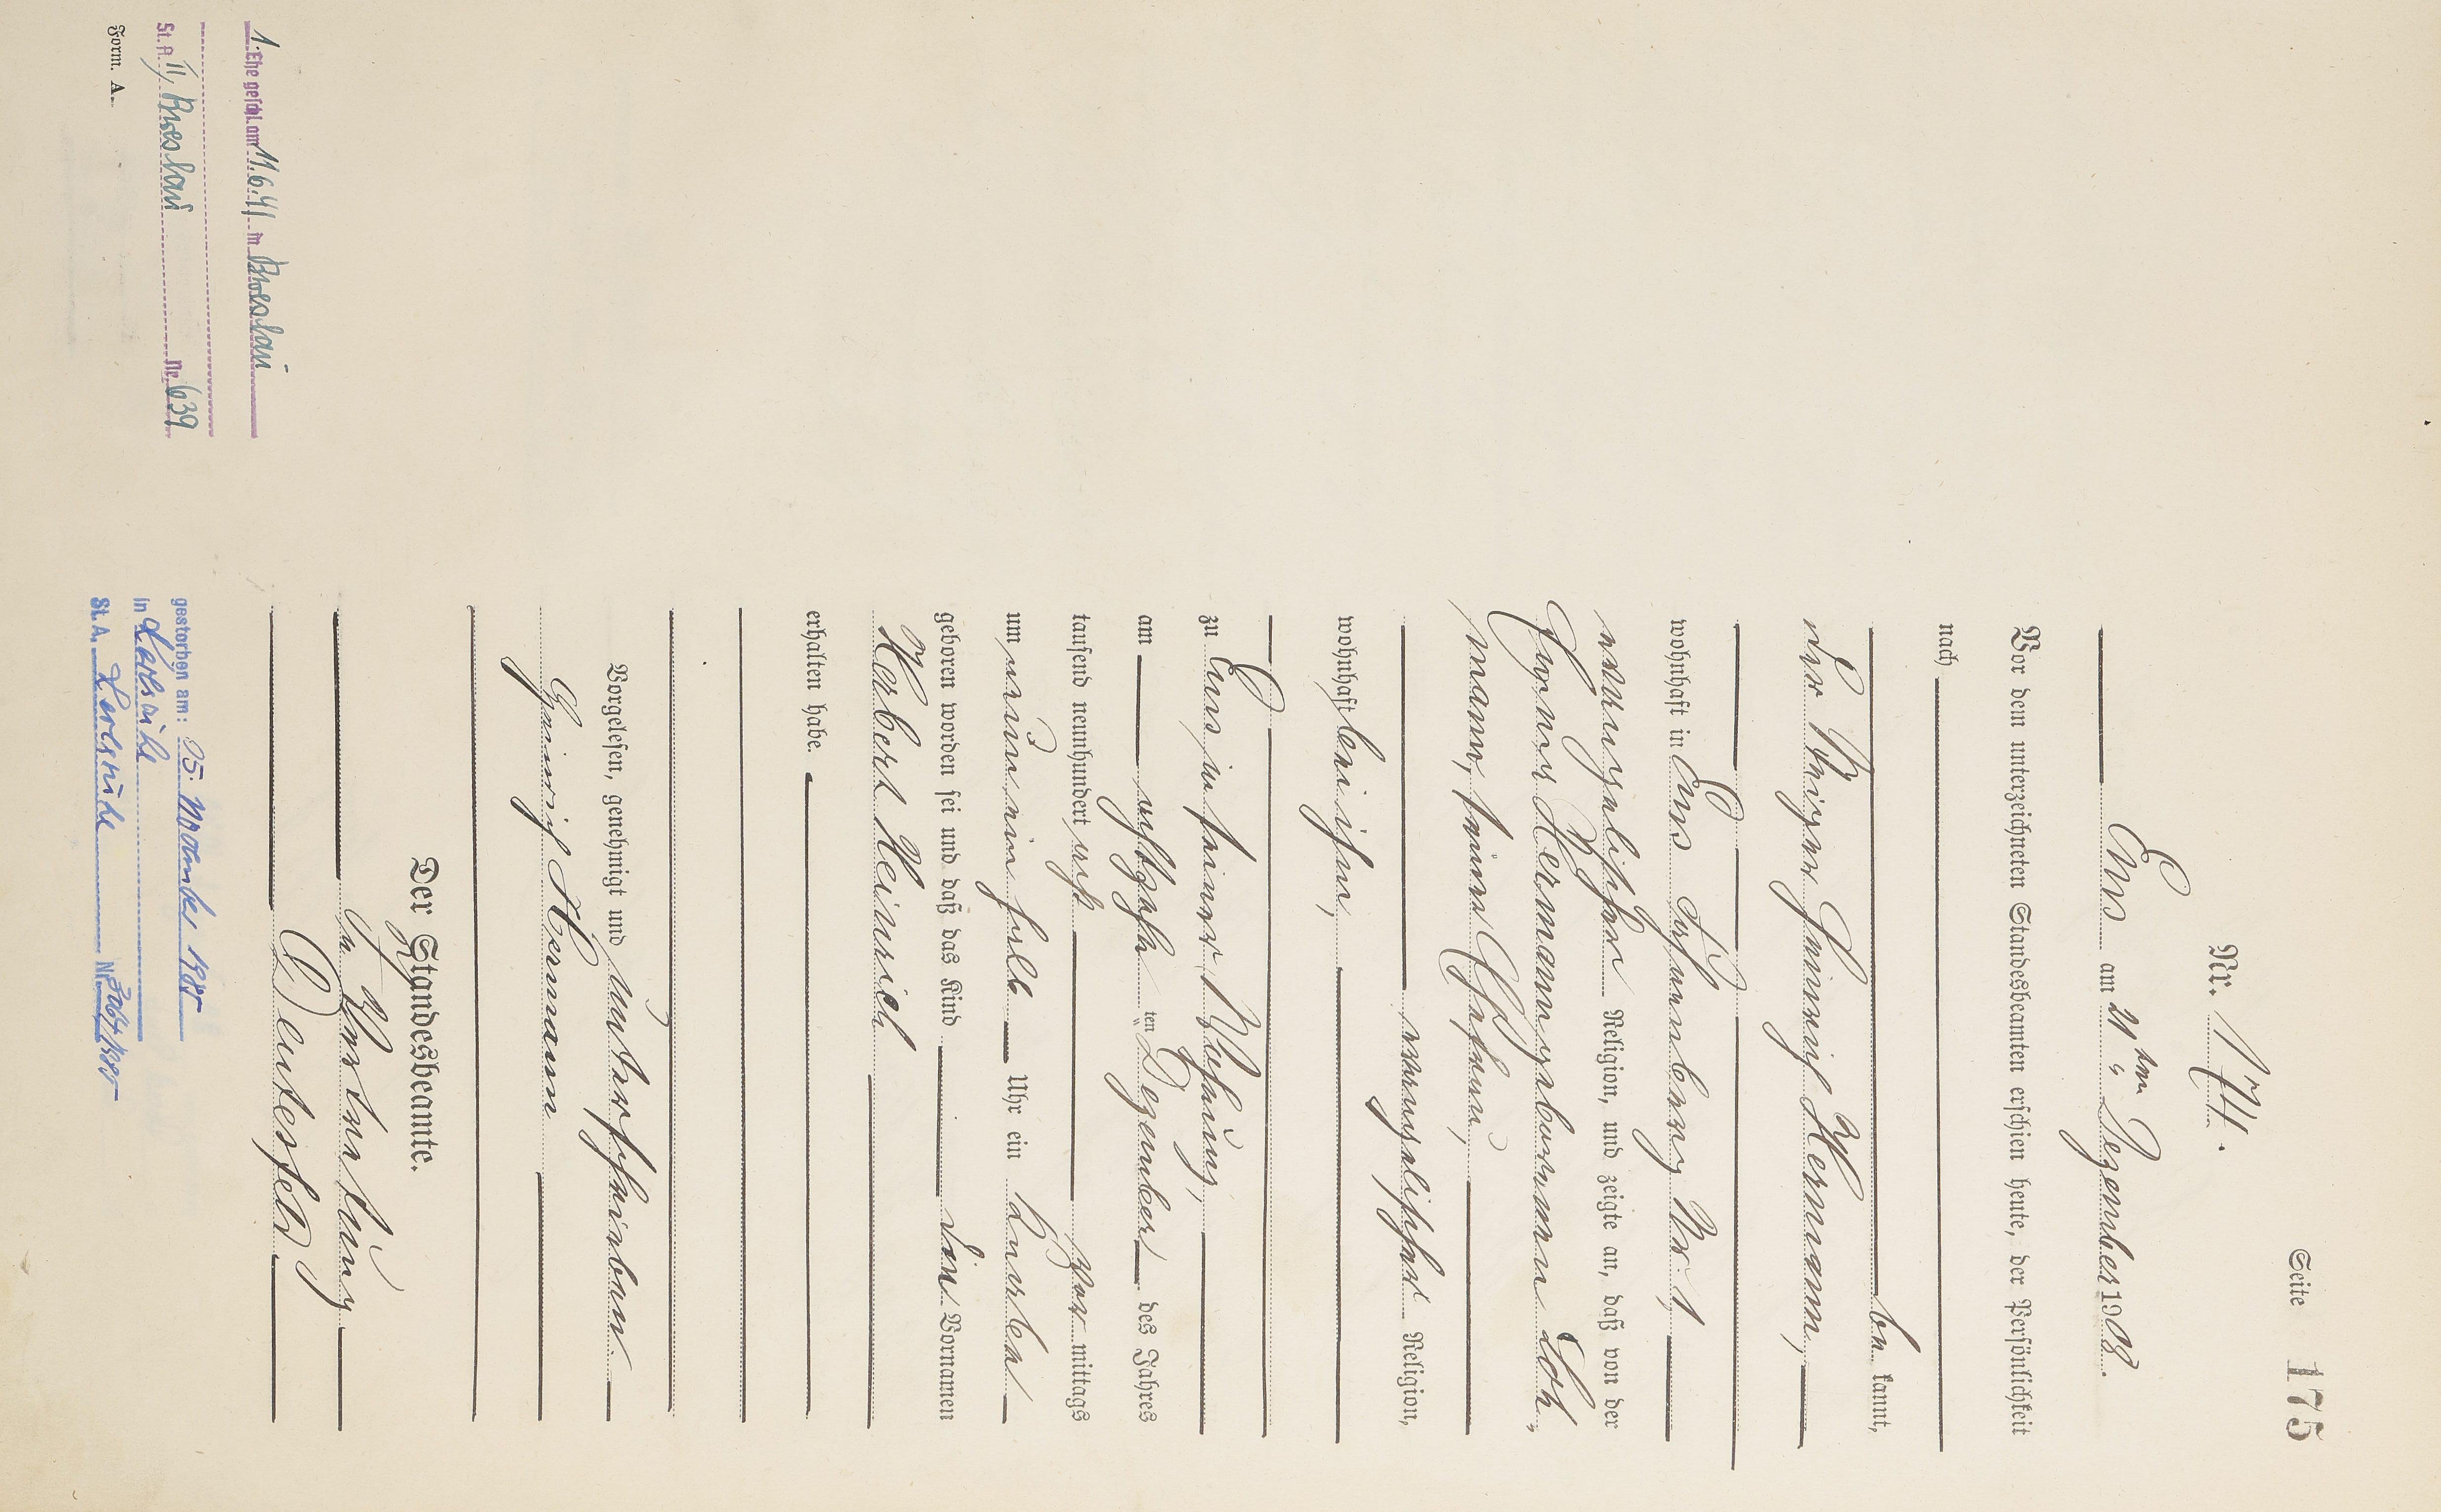 Seite 175
Nr. 174.
Ems am 21ten Dezember 1908.
Vor dem unterzeichneten Standesbeamten erschien heute, der Persönlichkeit
nach
be kannt,
der Heinrich Hermann,
wohnhaft in Ems Nr. 1
evangelischer Religion, und zeigte an, daß von der
Hermann geborenen Loh-
mann, seiner Ehefrau,
evangelischer Religion,
wohnhaft bei ihm,
zu Ems in seiner Wohnung,
am achtzehn ten Dezember des Jahres
tausend neunhundert acht Vor mittags
um neun ein halb Uhr ein Knabe
geboren worden sei und daß das Kind die Vornamen
Herbert Heinrich
erhalten habe.
Vorgelesen, genehmigt und unterschrieben.
Heinrich Hermann
Der Standesbeamte.
In Vertretung
1. Ehe geschl. am 11.6.41 in Breslau
St. A. II, Breslau Nr. 639
gestorben am: 05. November 1985
in Karlsruhe
St. A. Karlsruhe Nr. 3064/1985
Form. A.